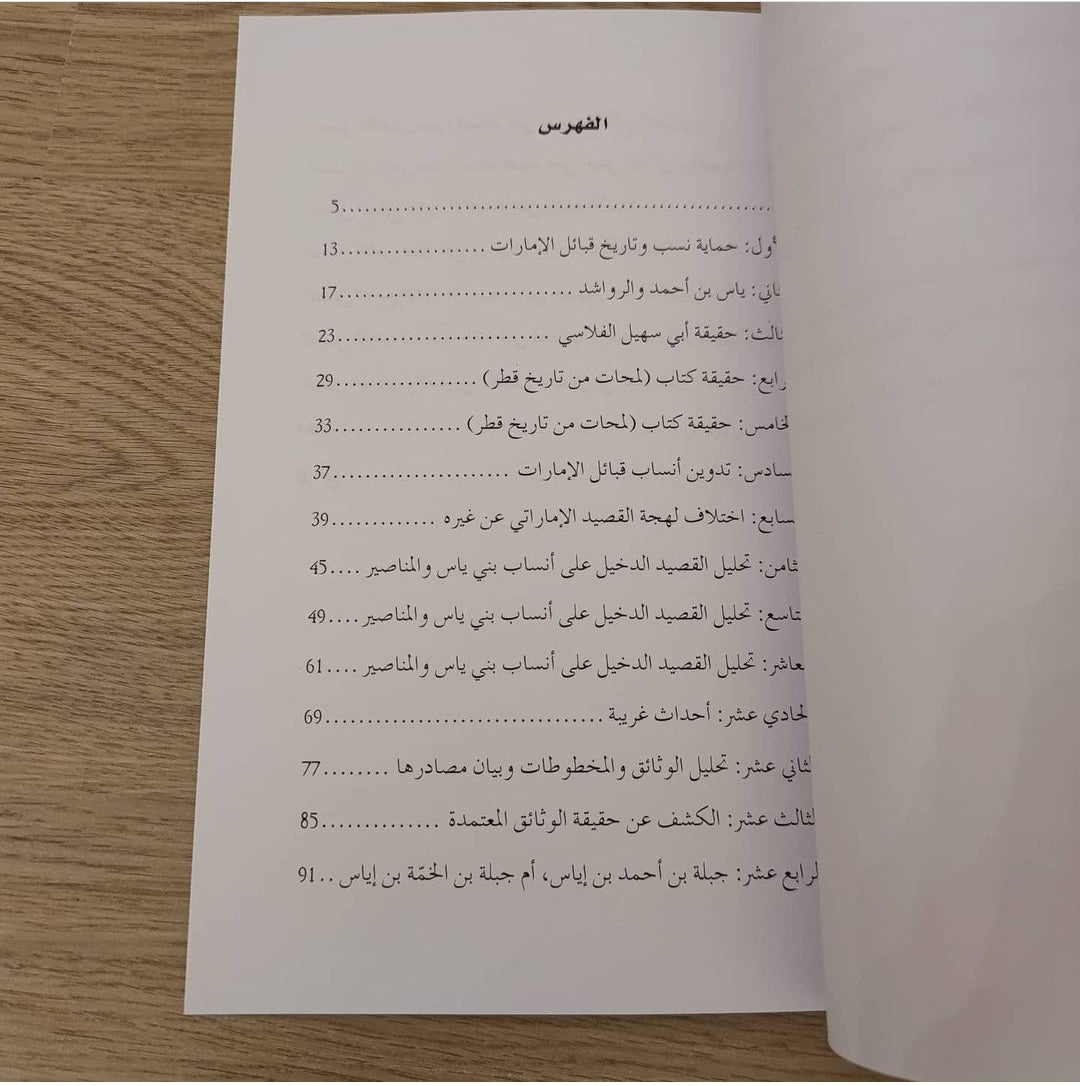 الفهرس
..........................................................5
أول: حماية نسب وتاريخ قبائل الإمارات ..................13
ثاني: ياس بن أحمد والرواشد ..............................17
ثالث: حقيقة أبي سهيل الفلاسي ...........................23
رابع: حقيقة كتاب (لمحات من تاريخ قطر) .................29
لخامس: حقيقة كتاب (لمحات من تاريخ قطر) ................33
سادس: تدوين أنساب قبائل الإمارات ..................37
سابع: اختلاف لهجة القصيد الإماراتي عن غيره .............39
ثامن: تحليل القصيد الدخيل على أنساب بني ياس والمناصير ....45
تاسع: تحليل القصيد الدخيل على أنساب بني ياس والمناصير ....49
عاشر: تحليل القصيد الدخيل على أنساب بني ياس والمناصير ....61
لحادي عشر: أحداث غريبة ................................69
لثاني عشر: تحليل الوثائق والمخطوطات وبيان مصادرها ........77
لثالث عشر: الكشف عن حقيقة الوثائق المعتمدة ..............85
لرابع عشر: جبلة بن أحمد بن إياس، أم جبلة بن الخمّة بن إياس ..91